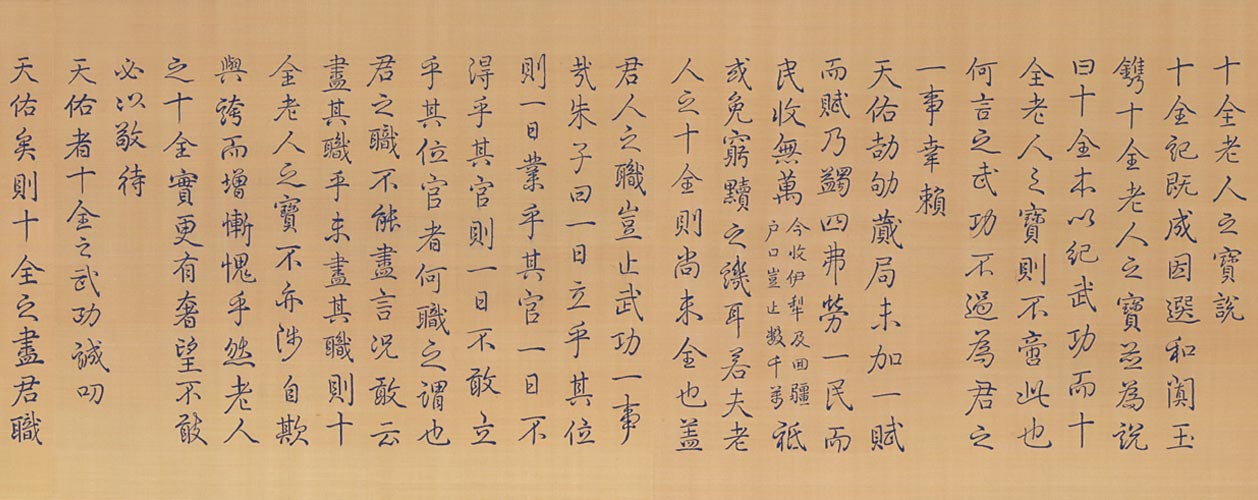 十全老人之寶說
十全記既成因選和闐玉
鐫十全老人之寶並為說
曰十全本以紀武功而十
全老人之寶則不啻此也
何言之武功不過為君之
一事幸賴
天佑劼劬蕆局未加一賦
而賦乃蠲四弗勞一民而
民收無萬今收伊犁及回疆戶口豈止數千萬祗
或免窮黷之譏耳若夫老
人之十全則尚未全也蓋
君人之職豈止武功一事
哉朱子曰一日立乎其位
則一日業乎其官一日不
得乎其官則一日不敢立
乎其位官者何職之謂也
君之職不能盡言況敢云
盡其職乎未盡其職則十
全老人之寶不亦涉自欺
與誇而增慚愧乎然老人
之十全實更有奢望不敢
必以敬待
天佑者十全之武功誠叨
天佑矣則十全之盡君職